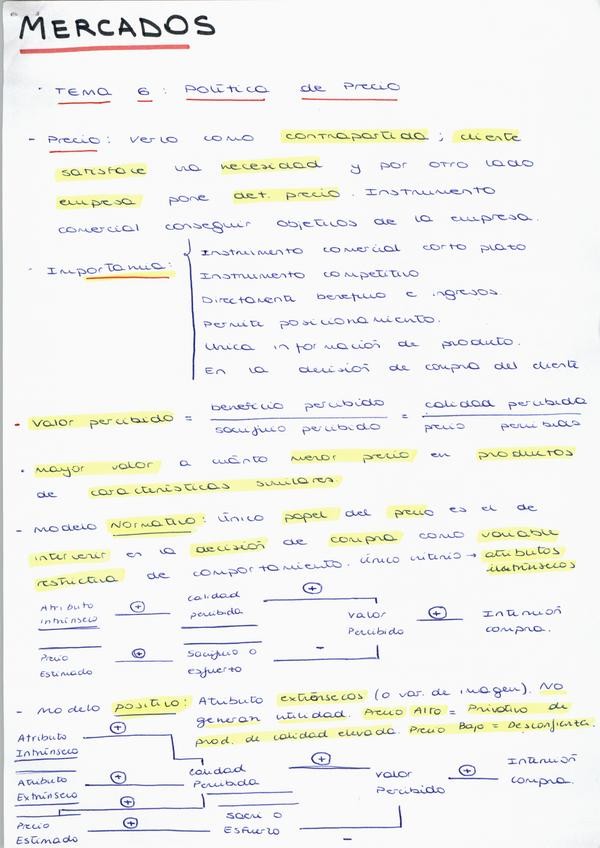 MERCADOS
· TEMA 6: Política de Precio
- Precio: verlo como contrapartida; cliente
satisface una necesidad y por otro lado
empresa pone det. precio. Instrumento
comercial conseguir objetivos de la empresa.
· Importancia:
Instrumento comercial corto plazo
Instrumento competitivo
Directamente beneficio e ingresos.
Permite posicionamiento.
Única información de producto.
En la decisión de compra del cliente
· Valor percibido = beneficio percibido / sacrificio percibido = calidad percibida / precio percibido
· mayor valor a cuánto menor precio en productos
de características similares.
- Modelo Normativo: único papel del precio es el de
intervenir en la decisión de compra como variable
restrictiva de comportamiento. Único criterio → atributos
intrínsecos
Atributo Intrínseco + calidad percibida +
valor Percibido + Intención compra.
Precio Estimado + Sacrificio o esfuerzo -
- Modelo positivo: Atributo extrínsecos (o var. de imagen). No
generan utilidad. Precio Alto = Privativo de
prod. de calidad elevada. Precio Bajo = Desconfianza.
Atributo Intrínseco +
Atributo Extrínseco + calidad Percibida + valor Percibido + Intención compra.
+
Precio Estimado + sacri o Esfuerzo -